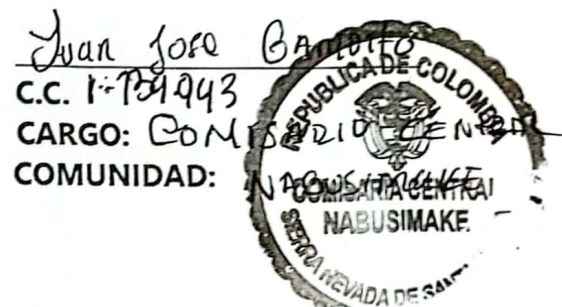 Juan Jose
C.C.
CARGO: COMISARIO CENTRAL
COMUNIDAD: NABUSIMAKE
REPUBLICA DE COLOMBIA
COMISARIA CENTRAL
NABUSIMAKE
SIERRA NEVADA DE